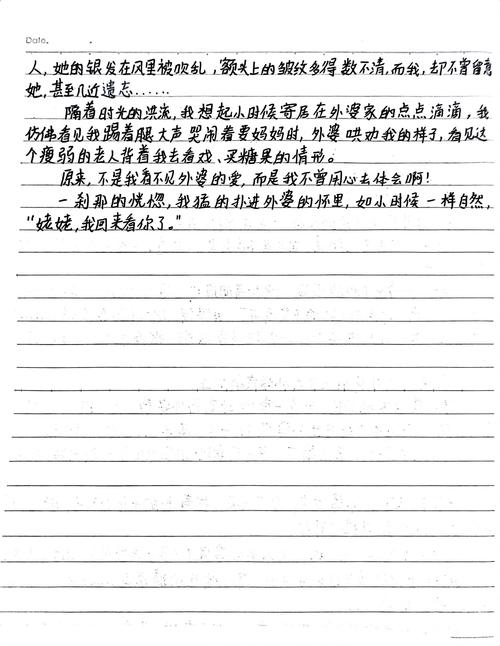 Date.
人，她的银发在风里被吹乱，额头上的皱纹多得数不清，而我，却不曾留意
她，甚至几近遗志……
隔着时光的洪流，我想起小时候寄居在外婆家的点点滴滴，我
仿佛看见我踢着腿大声哭闹着要妈妈时，外婆哄劝我的样子，看见这
个瘦弱的老人背着我去看戏、买糖果的情形。
原来，不是我看不见外婆的爱，而是我不曾用心去体会啊！
一刹那的恍惚，我猛的扑进外婆的怀里，如小时候一样自然，
“姥姥，我回来看你了。”